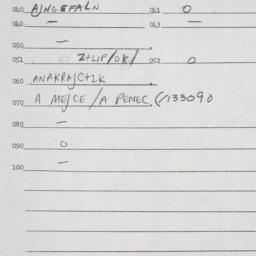 040 AJNGEFALN 041 0
042 — 043 —
050 —
051 0 Z+LIP/OK/ 052 0
060 ANAKRAJCTIK
070 A MEJCE/A PENEC (/133090
080 —
090 0
100 —